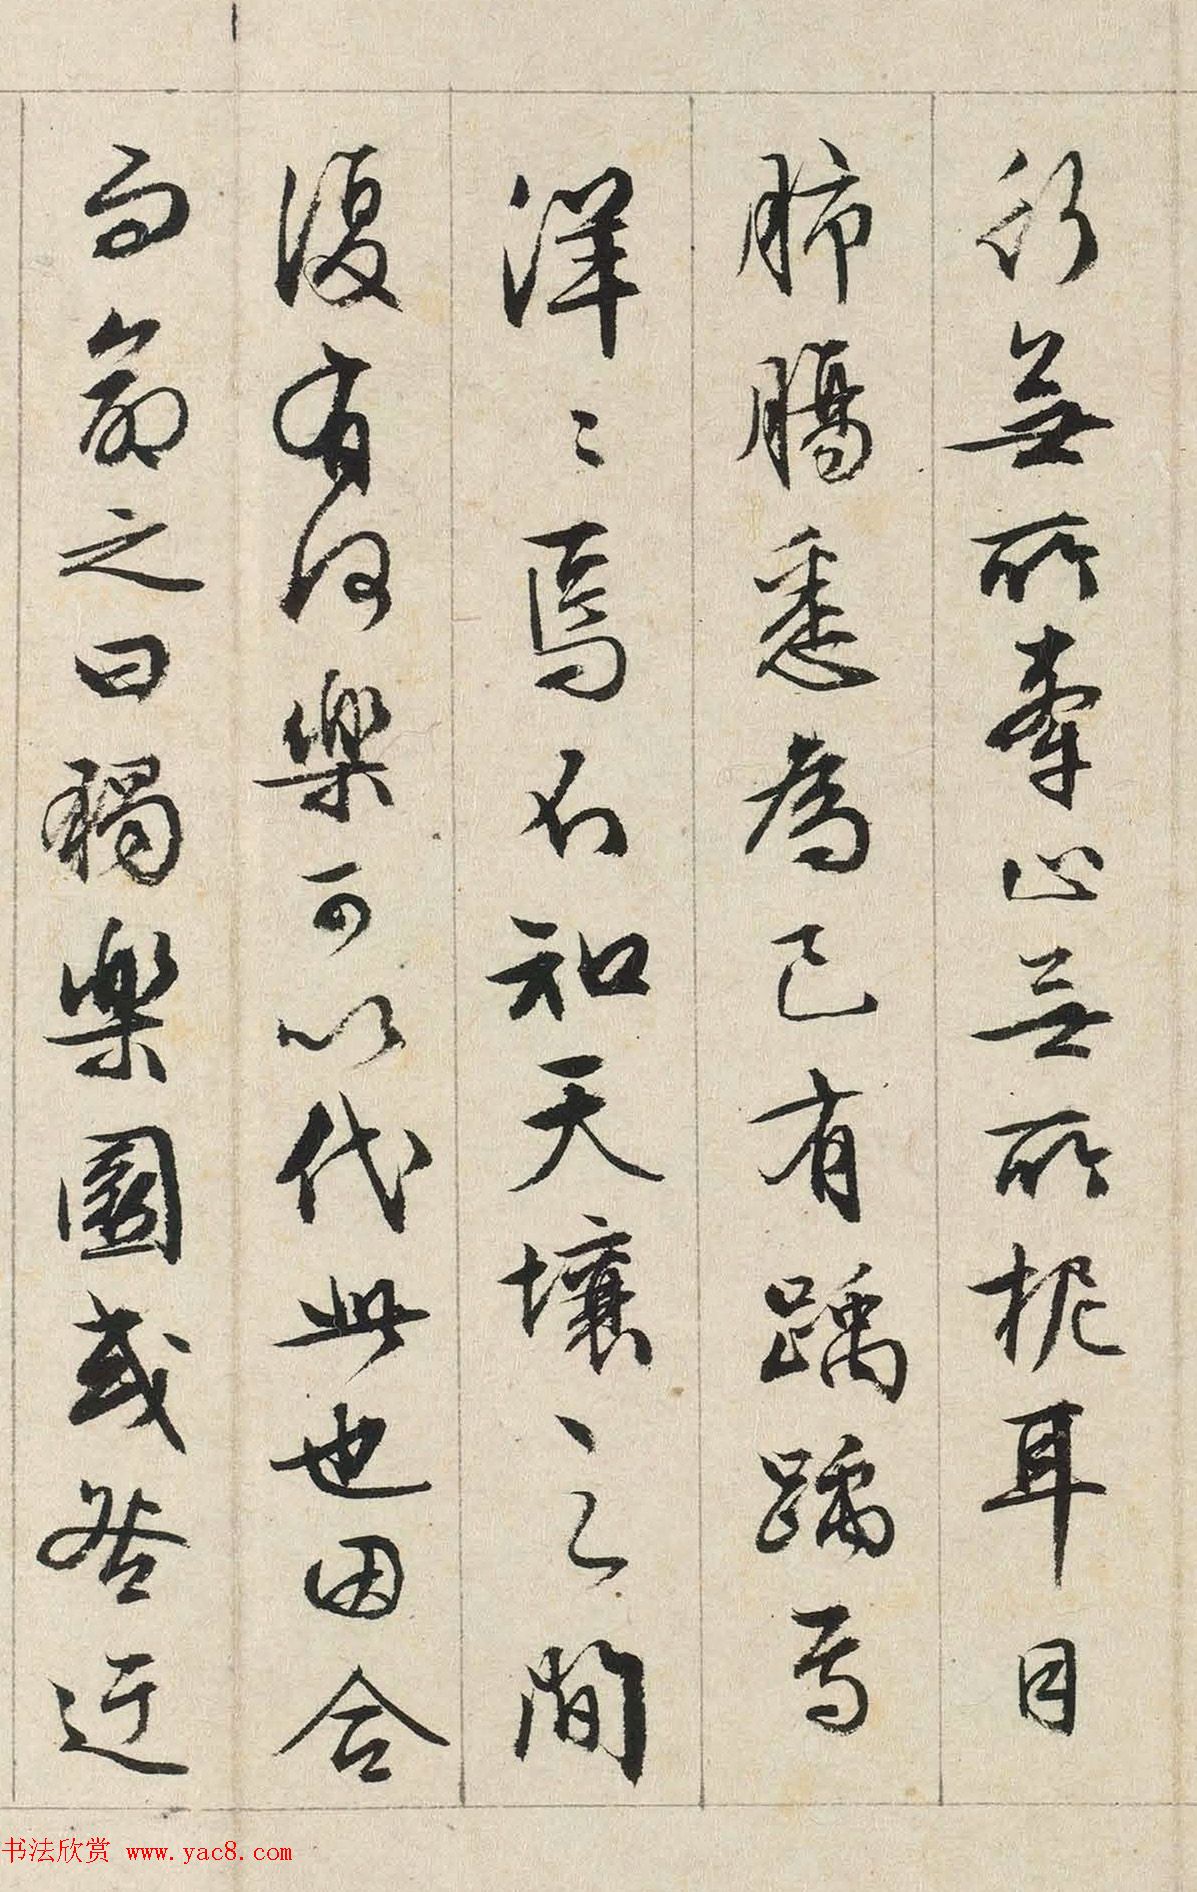 行無所牽止無所柅耳目
肺腸悉為己有踽踽焉
洋〻焉不知天壤〻之間
復有何樂可以代此也因合
而命之曰獨樂園或咎迂
书法欣赏 www.yac8.com